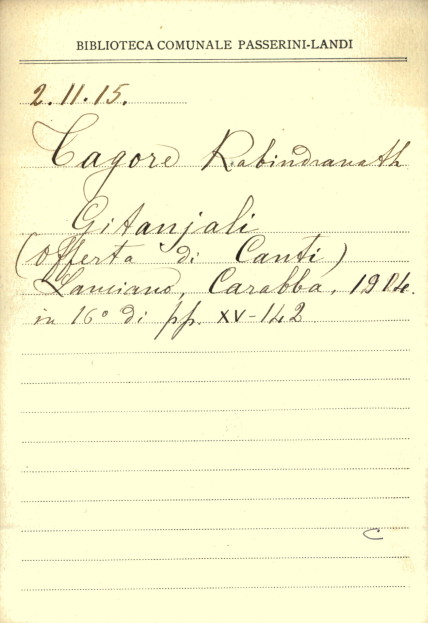 BIBLIOTECA COMUNALE PASSERINI-LANDI
2.11.15.
Tagore Rabindranath
Gitanjali
(Offerta di Canti)
Lanciano, Carabba, 1914.
in 16º di pp. XV-142
C